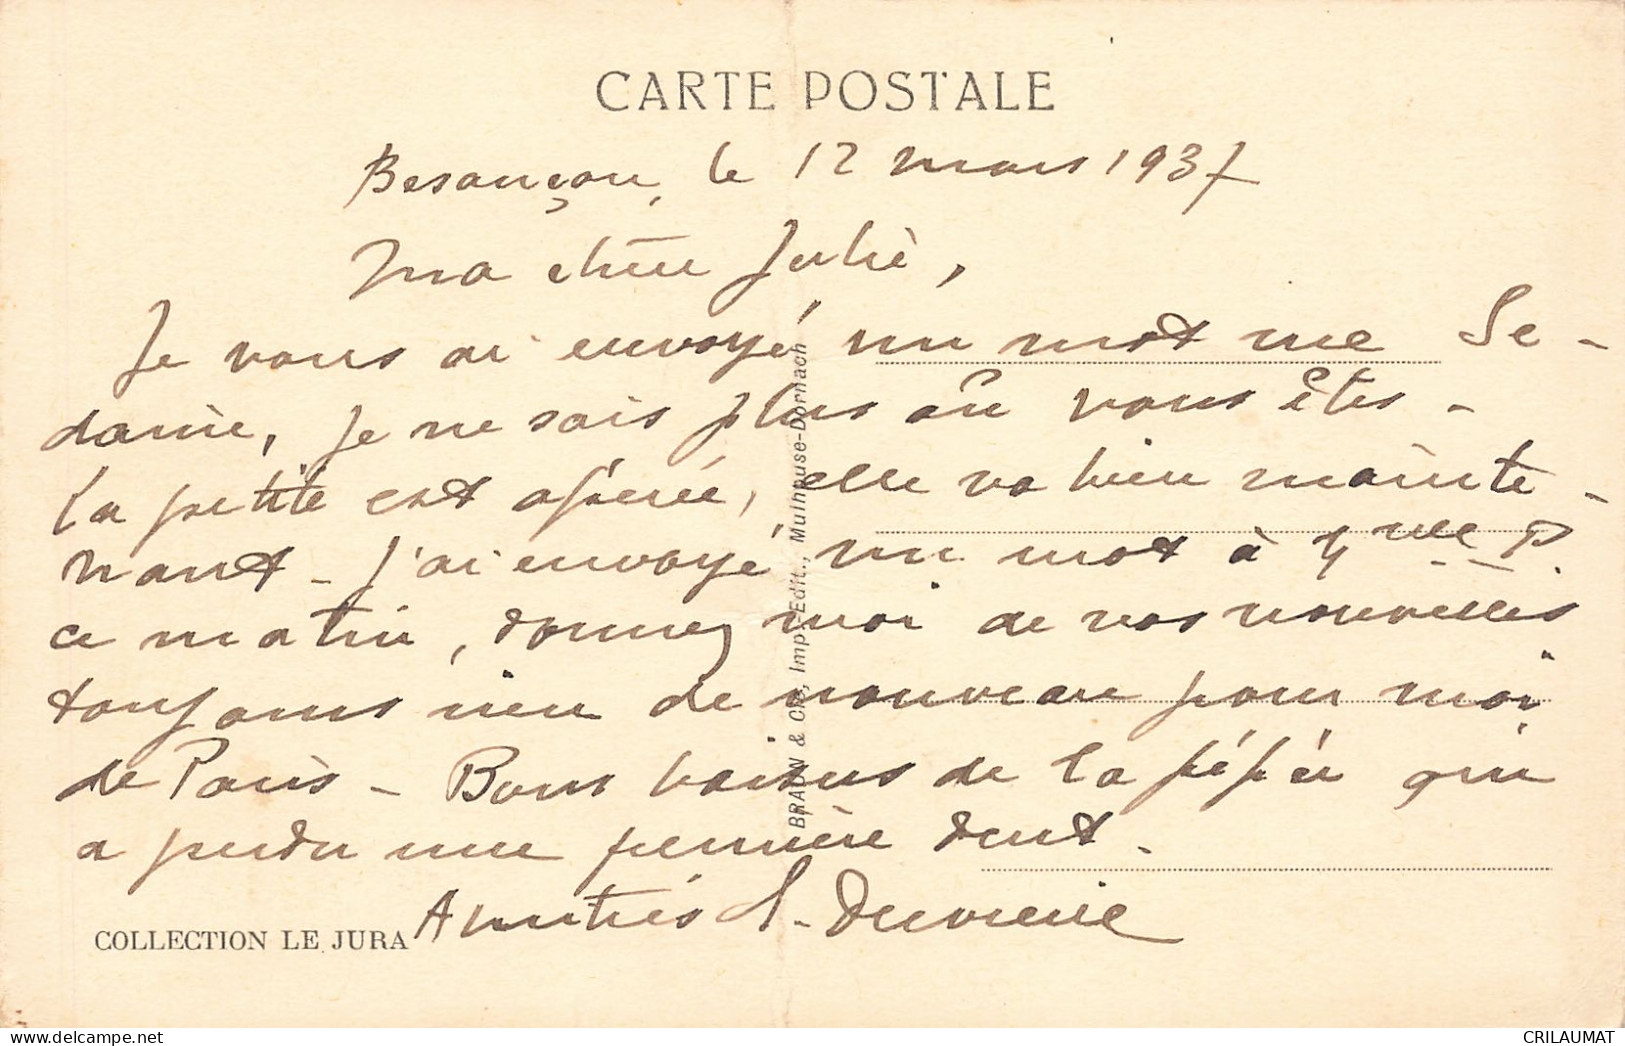 CARTE POSTALE
Besançon, le 12 mars 1937
Ma chère Julie,
Je vous ai envoyé un mot rue Se-
daine, je ne sais plus où vous êtes -
La petite est opérée, elle va bien mainte-
nant - J'ai envoyé un mot à Mme P.
ce matin, donnez moi de vos nouvelles
toujours rien de nouveau pour moi
de Paris - Bons baisers de la pépée qui
a perdu une première dent.
Amitiés
COLLECTION LE JURA
BRAUN & Cie, Imp.-Edit., Mulhouse-Dornach
CRILAUMAT